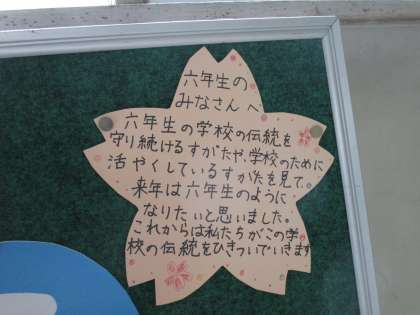 六年生の
みなさんへ
六年生の学校の伝統を
守り続けるすがたや、学校のために
活やくしているすがたを見て。
来年は六年生のように
なりたいと思いました。
これからは私たちがこの学
校の伝統をひきついでいきます